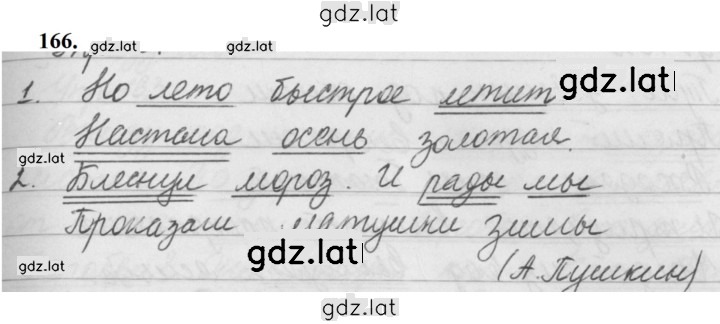 gdz.lat
166. gdz.lat gdz.lat
gdz.lat
1. Но лето быстрое летит
Настала осень золотая.
gdz.lat gdz.lat
2. Блеснул мороз. И рады мы
Проказам матушки зимы
gdz.lat gdz.lat
(А. Пушкин)
gdz.lat